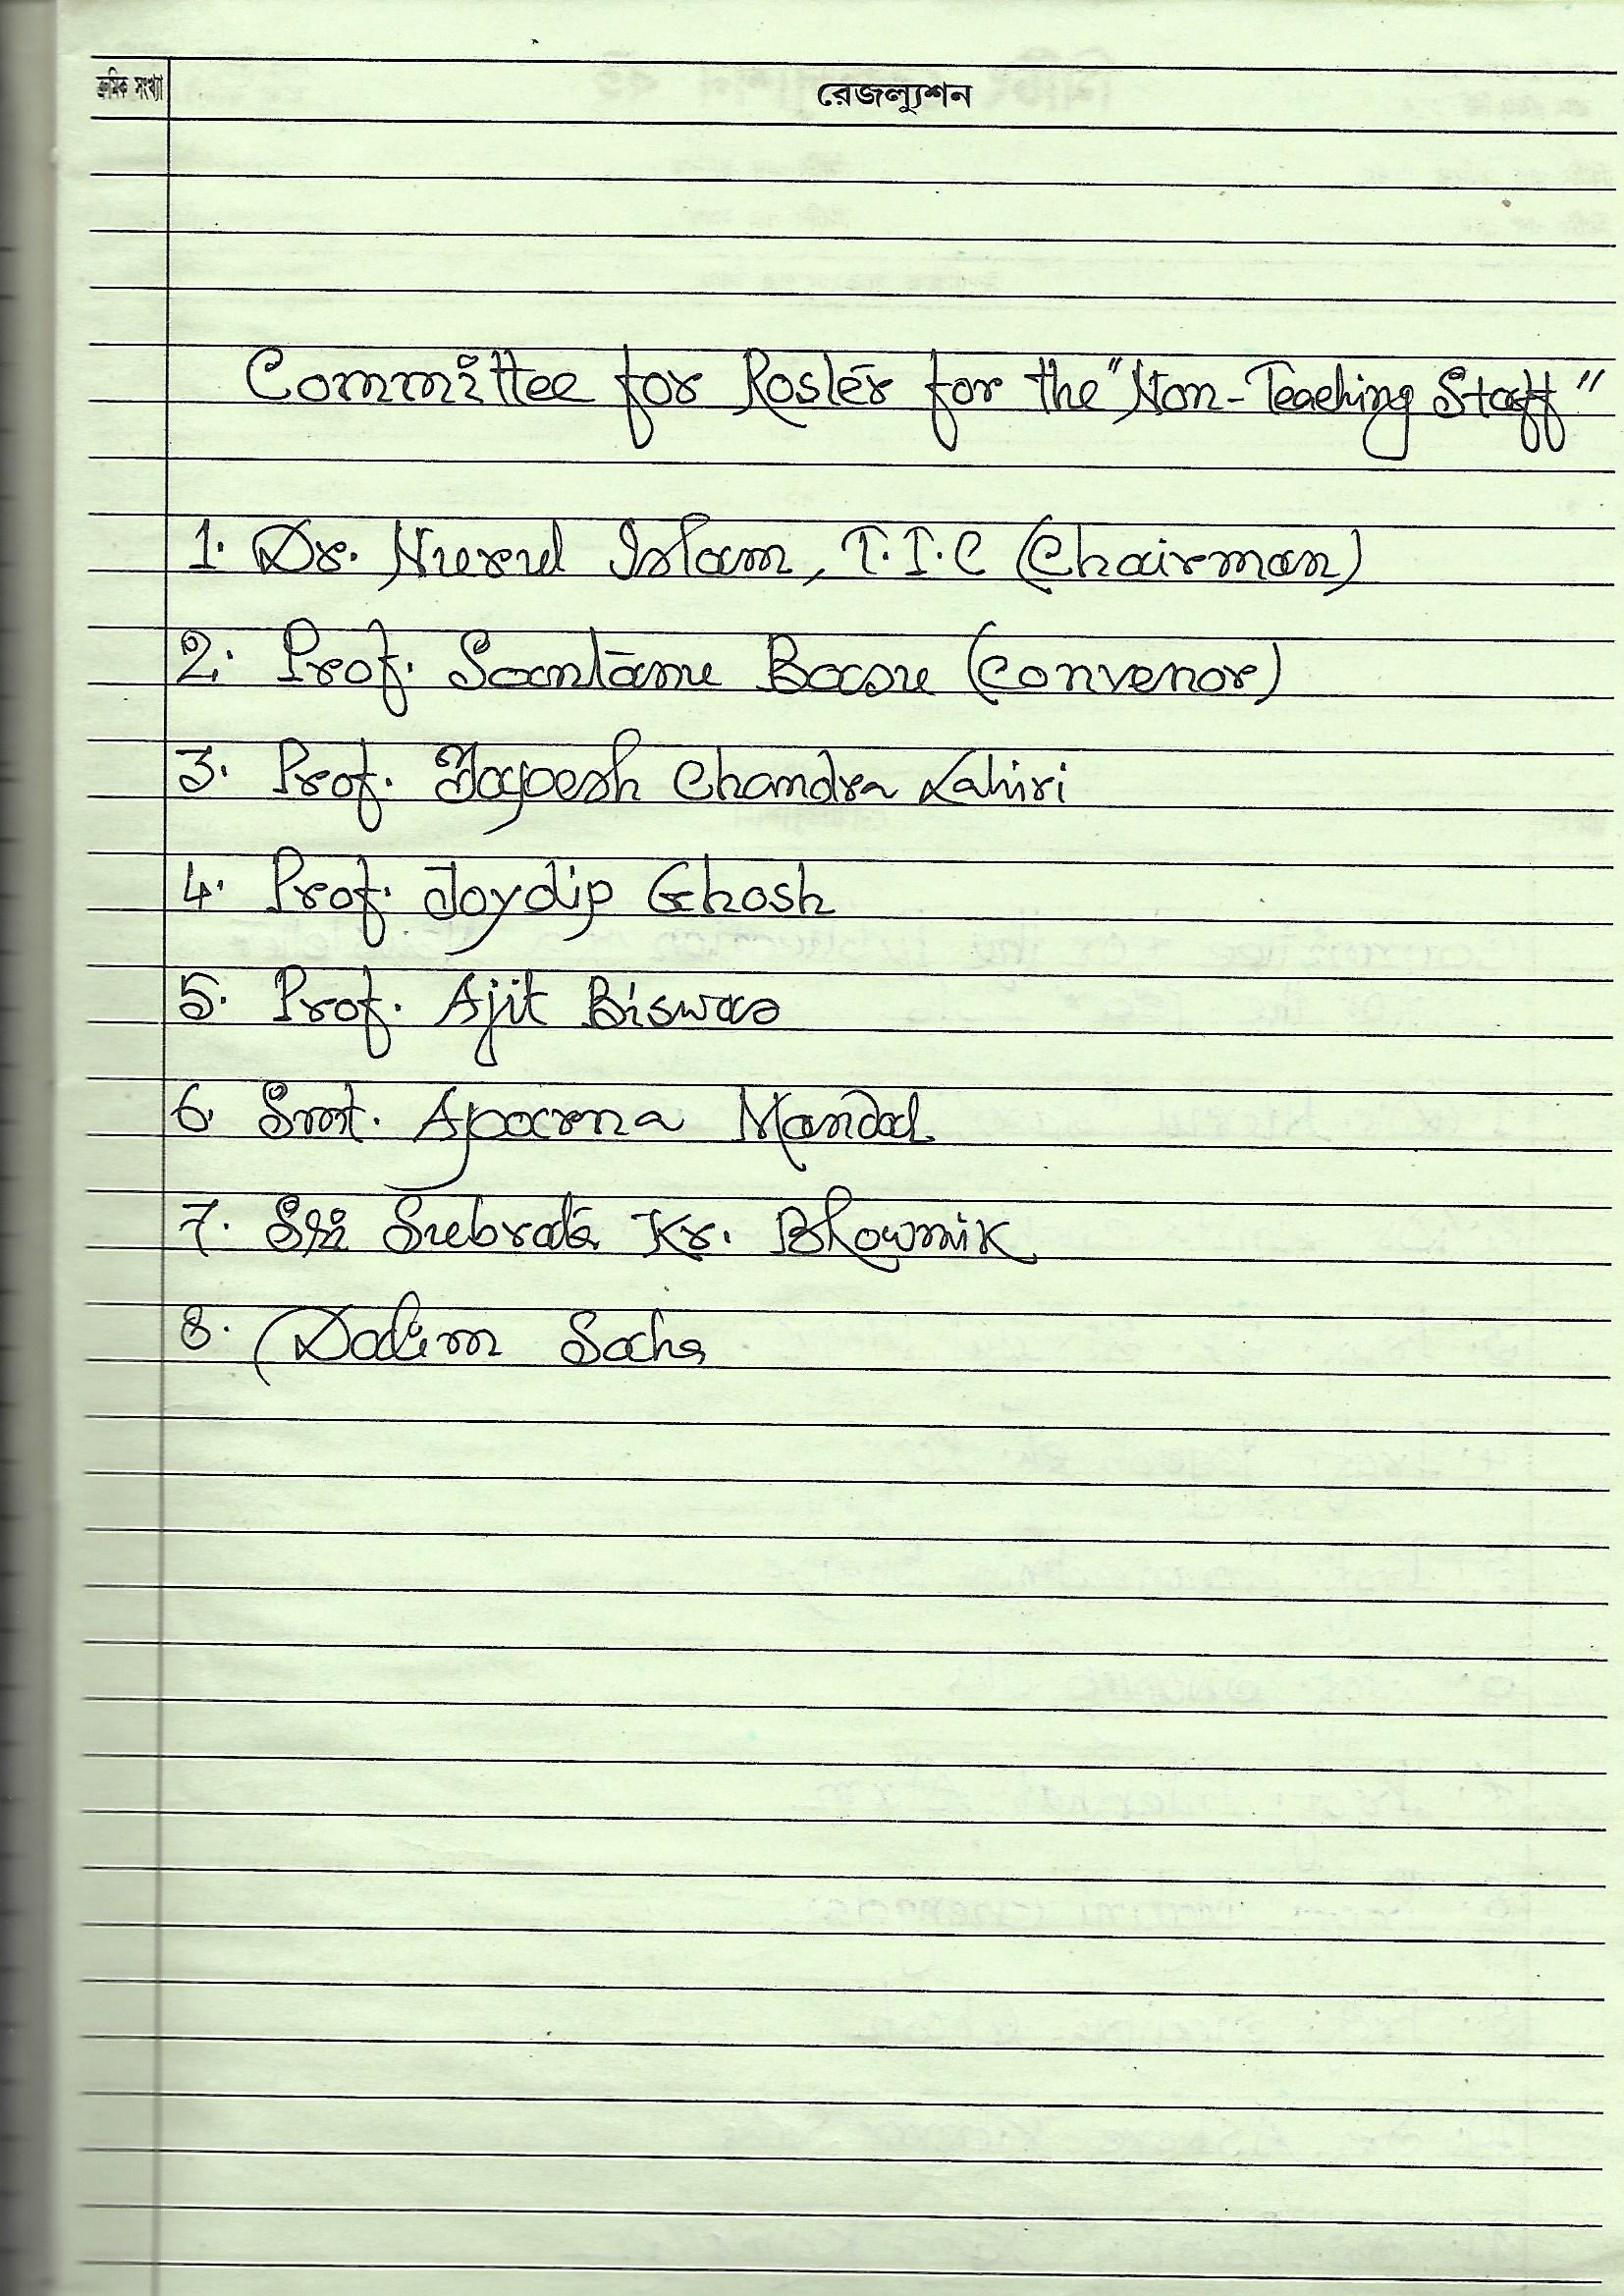 ক্রমিক সংখ্যা
রেজল্যুশন
Committee for Roster for the "Non-Teaching Staff"
1. Dr. Nurul Islam, T.I.C (Chairman)
2. Prof. Santanu Basu (Convenor)
3. Prof. Chandra Lahiri
4. Prof. Joydip Ghosh
5. Prof. Ajit Biswas
6. Smt. Aparna Mandal
7. Sri Subrata Kr. Bhowmik
8. Dalim Saha